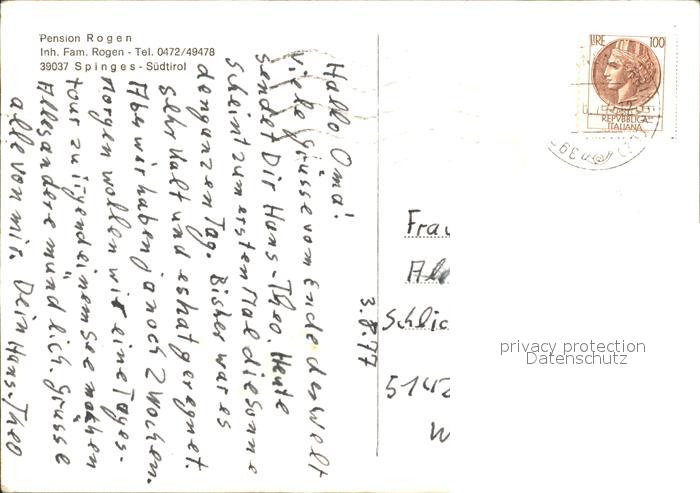 Pension Rogen
Inh. Fam. Rogen - Tel. 0472/49478
39037 Spinges - Südtirol
Hallo Oma!
viele Grüsse vom Ende der Welt
sendet Dir Hans-Theo. Heute
scheint zum ersten Mal die Sonne
den ganzen Tag. Bisher war es
sehr kalt und es hat geregnet.
Aber wir haben ja noch 2 Wochen.
Morgen wollen wir eine Tages-
tour zu irgend einem See machen
Alles andere mündlich. Grüsse
alle von mir. Dein Hans-Theo
3.8.77
LIRE 100
REPVBBLICA
ITALIANA
Frau
Schlic
5142
W
privacy protection
Datenschutz